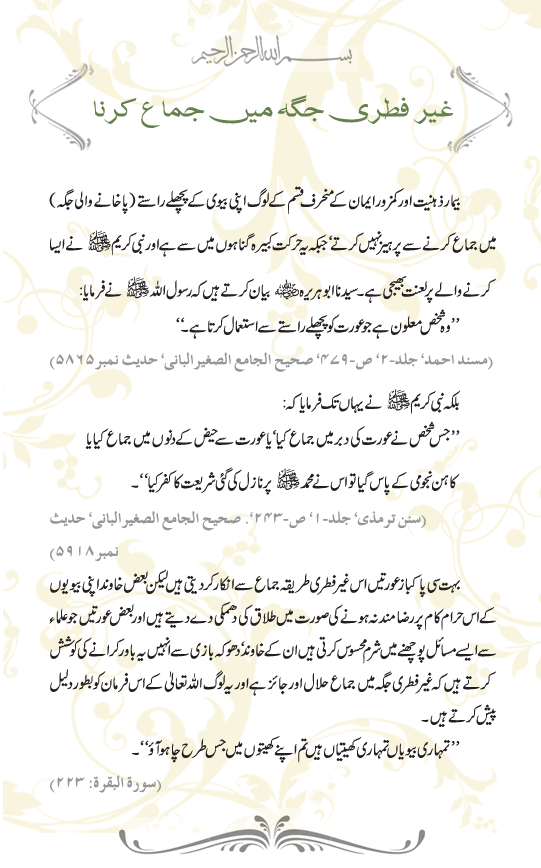 بسم الله الرحمن الرحيم
غیر فطری جگہ میں جماع کرنا
بیمار ذہنیت اور کمزور ایمان کے منحرف قسم کے لوگ اپنی بیوی کے پچھلے راستے (پاخانے والی جگہ)
میں جماع کرنے سے پرہیز نہیں کرتے، جبکہ یہ حرکت کبیرہ گناہوں میں سے ہے اور نبی کریم ﷺ نے ایسا
کرنے والے پر لعنت بھیجی ہے۔ سیدنا ابوہریرہ رضی اللہ عنہ بیان کرتے ہیں کہ رسول اللہ ﷺ نے فرمایا:
’’وہ شخص ملعون ہے جو عورت کو پچھلے راستے سے استعمال کرتا ہے۔‘‘
(مسند احمد‘ جلد-۲‘ ص-۴۷۹‘ صحیح الجامع الصغیر البانی‘ حدیث نمبر ۵۸۶۵)
بلکہ نبی کریم ﷺ نے یہاں تک فرمایا کہ:
’’جس شخص نے عورت کی دبر میں جماع کیا‘ یا عورت سے حیض کے دنوں میں جماع کیا یا
کاہن نجومی کے پاس گیا تو اس نے محمد ﷺ پر نازل کی گئی شریعت کا کفر کیا‘‘۔
(سنن ترمذی‘ جلد-۱‘ ص-۲۴۳‘. صحیح الجامع الصغیر البانی‘ حدیث
نمبر ۵۹۱۸)
بہت سی پاکباز عورتیں اس غیر فطری طریقہ جماع سے انکار کر دیتی ہیں لیکن بعض خاوند اپنی بیویوں
کے اس حرام کام پر رضامند نہ ہونے کی صورت میں طلاق کی دھمکی دے دیتے ہیں اور بعض عورتیں جو علماء
سے ایسے مسائل پوچھنے میں شرم محسوس کرتی ہیں ان کے خاوند‘ دھوکہ بازی سے انہیں یہ باور کرانے کی کوشش
کرتے ہیں کہ غیر فطری جگہ میں جماع حلال اور جائز ہے اور یہ لوگ اللہ تعالیٰ کے اس فرمان کو بطور دلیل
پیش کرتے ہیں۔
’’تمہاری بیویاں تمہاری کھیتیاں ہیں تم اپنے کھیتوں میں جس طرح چاہو آؤ‘‘۔
(سورة البقرة: ۲۲۳)